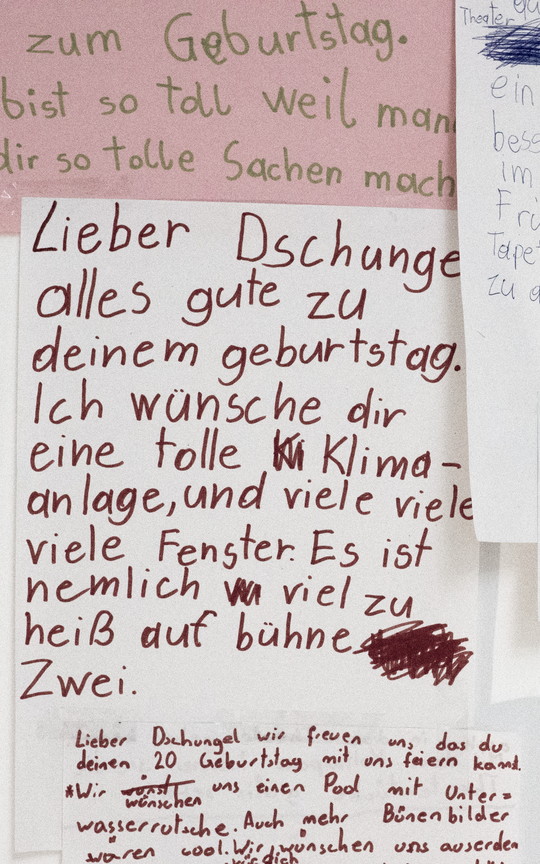 zum Geburtstag.
bist so toll weil man
dir so tolle Sachen mach
Theater
ein
bess
im
Frü
Tapet
zu a
Lieber Dschunge
alles gute zu
deinem geburtstag.
Ich wünsche dir
eine tolle Klima-
anlage, und viele viele
viele Fenster. Es ist
nemlich viel zu
heiß auf bühne
Zwei.
Lieber Dschungel wir freuen uns das du
deinen 20 Geburtstag mit uns feiern kannst.
*Wir wünschen uns einen Pool mit Unter=
wasserrutsche. Auch mehr Bünenbilder
wären cool. Wir wünschen uns auserden